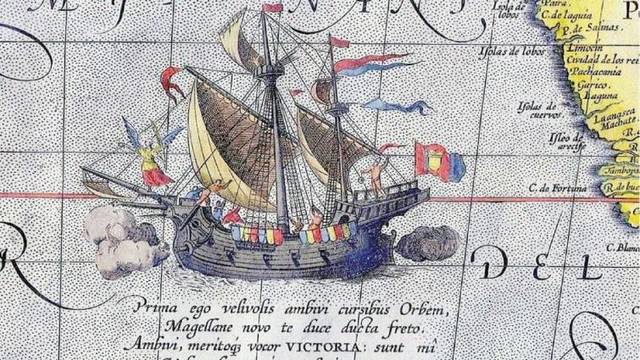 Isola de
lobos
Paita.
C. de laguia
P. de Salinas.
Isolas de lobos
Limocin
Cividad de los rei
Pachacania
Gurico.
Laguna
Isolas de
cuervos
Laangsca
Machate.
Isleo de
arecife
C. de Fortuna
C. Blar
R DEL
Prima ego velivolis ambivi cursibus Orbem,
Magellane novo te duce ducta freto.
Ambivi, meritoq vocor VICTORIA: sunt mî